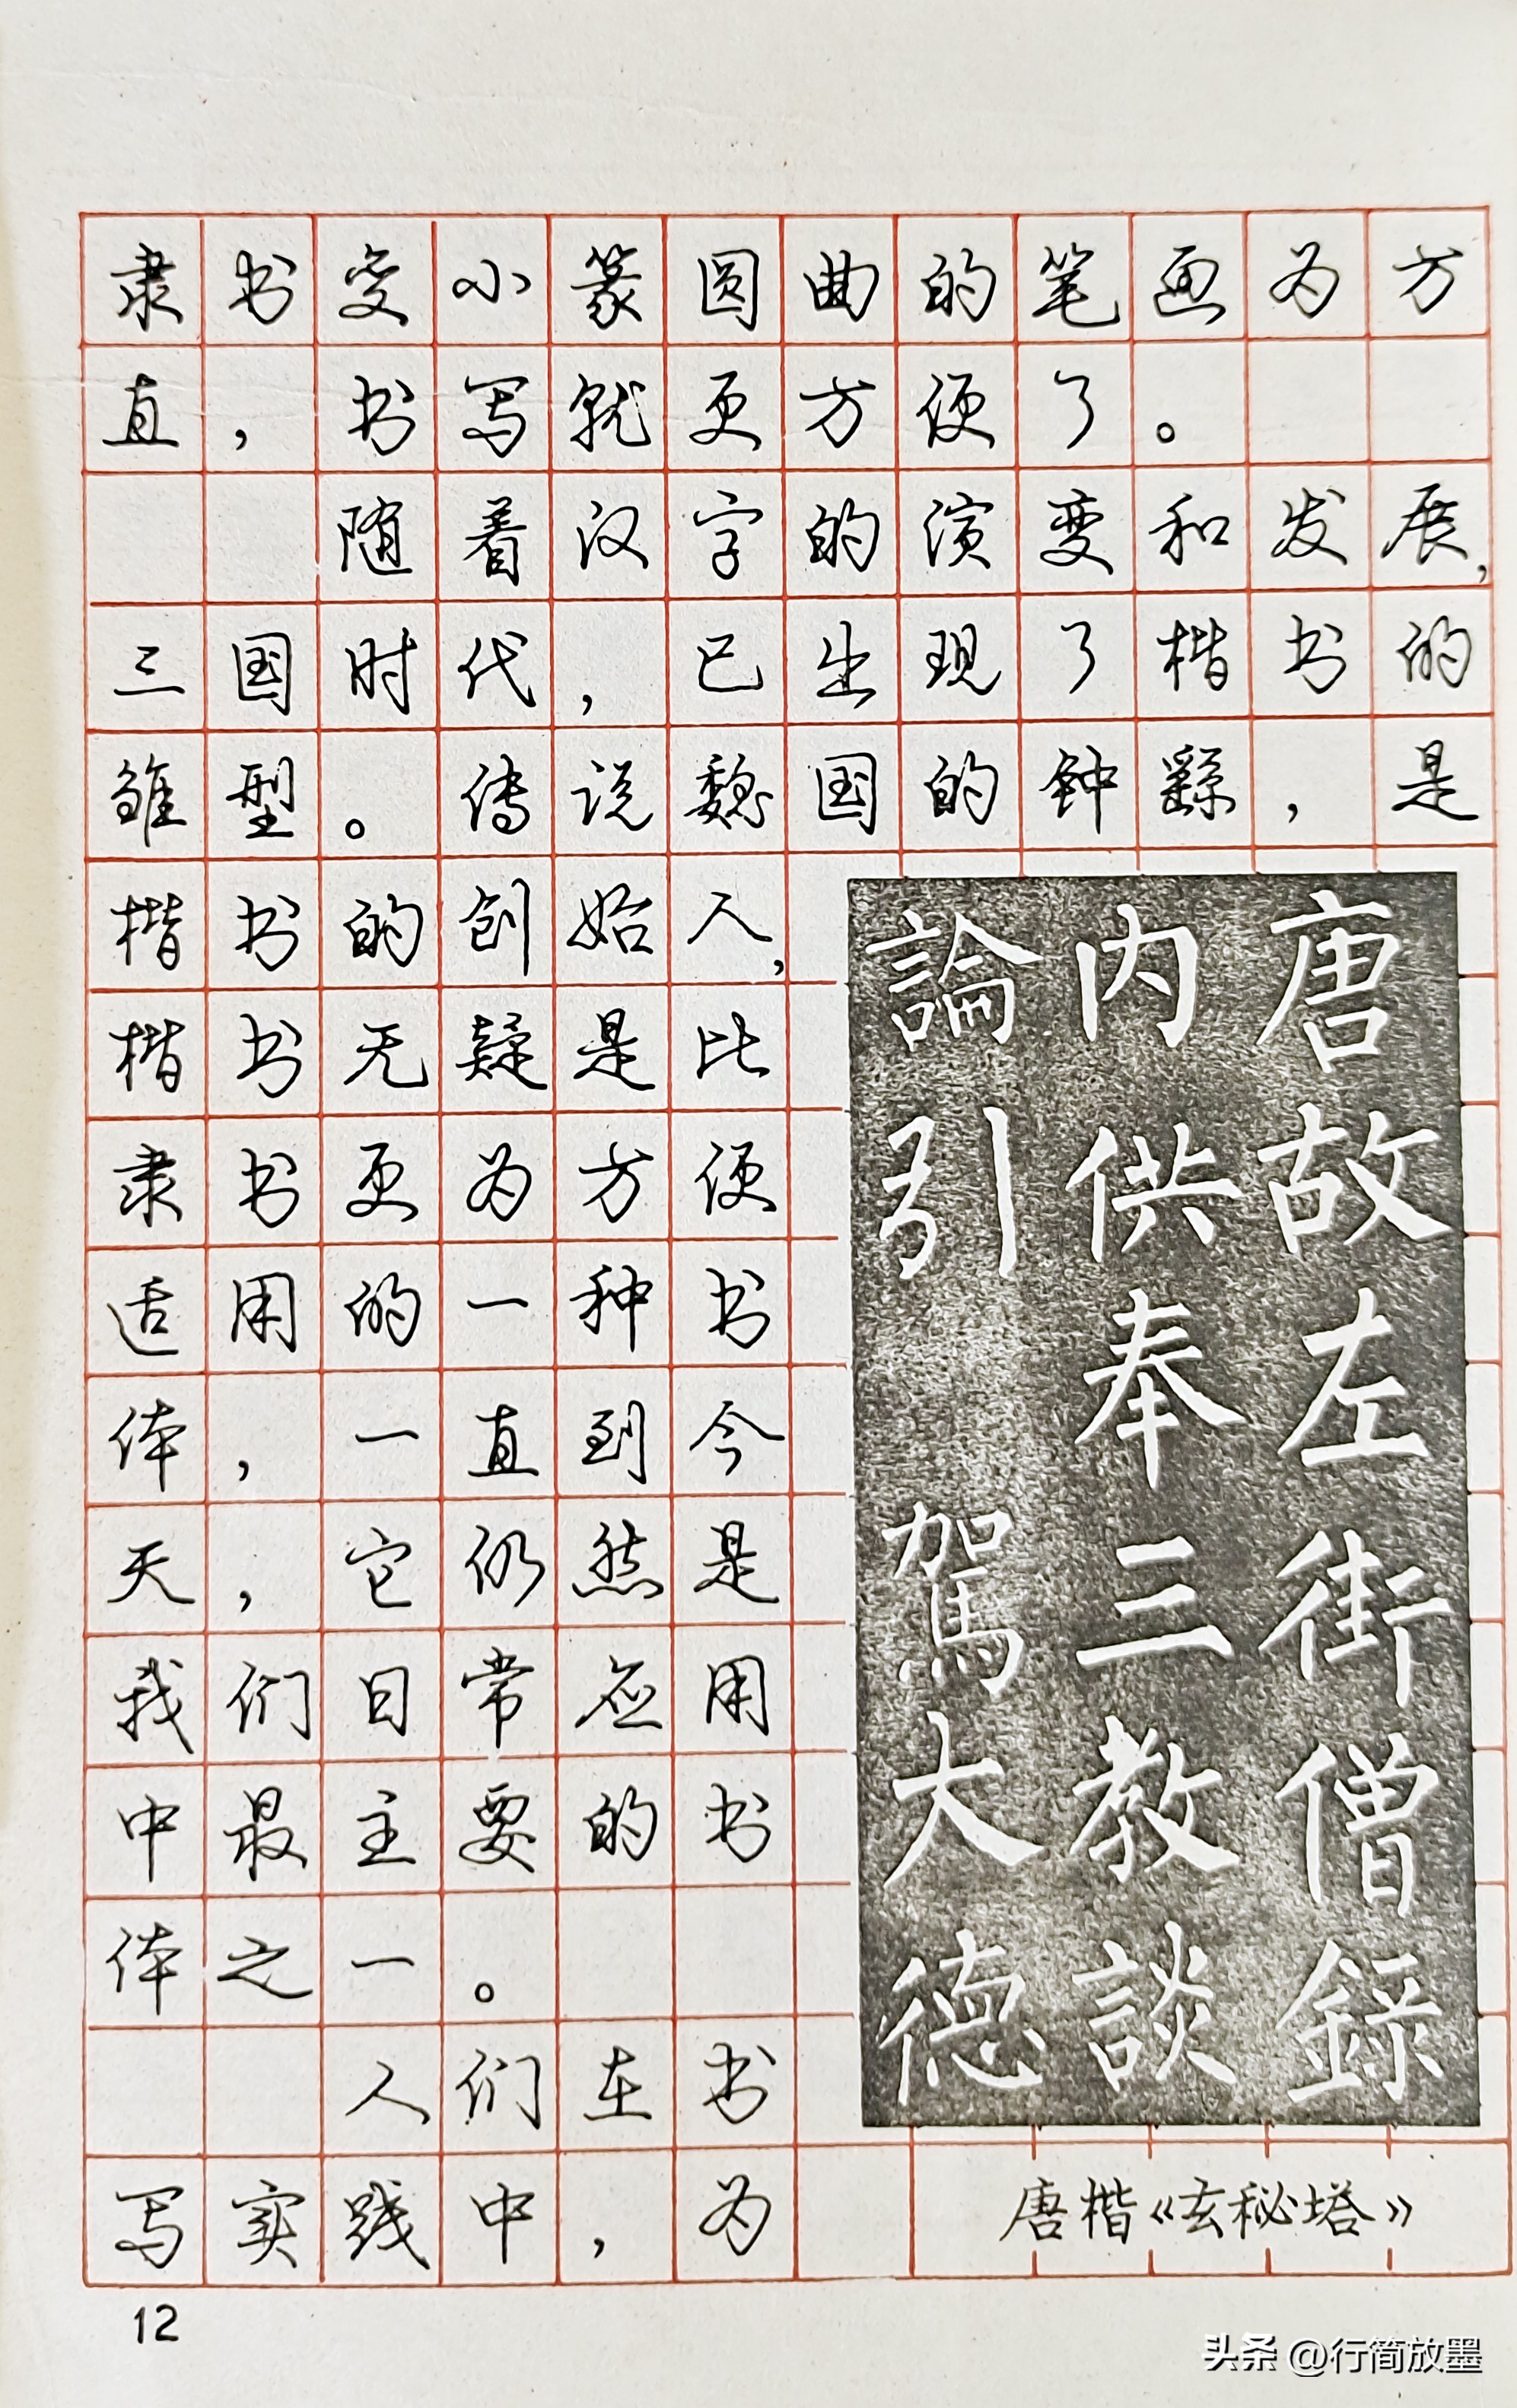 隶书变小篆圆曲的笔画为方
直，书写就更方便了。
随着汉字的演变和发展，
三国时代，已出现了楷书的
雏型。传说魏国的钟繇，是
楷书的创始人，
楷书无疑是比
隶书更为方便
适用的一种书
体，一直到今
天，它仍然是
我们日常应用
中最主要的书
体之一。
人们在书
写实践中，为
唐故左街僧錄
内供奉三教談
論引駕大德
唐楷《玄秘塔》
12
头条 @行简放墨